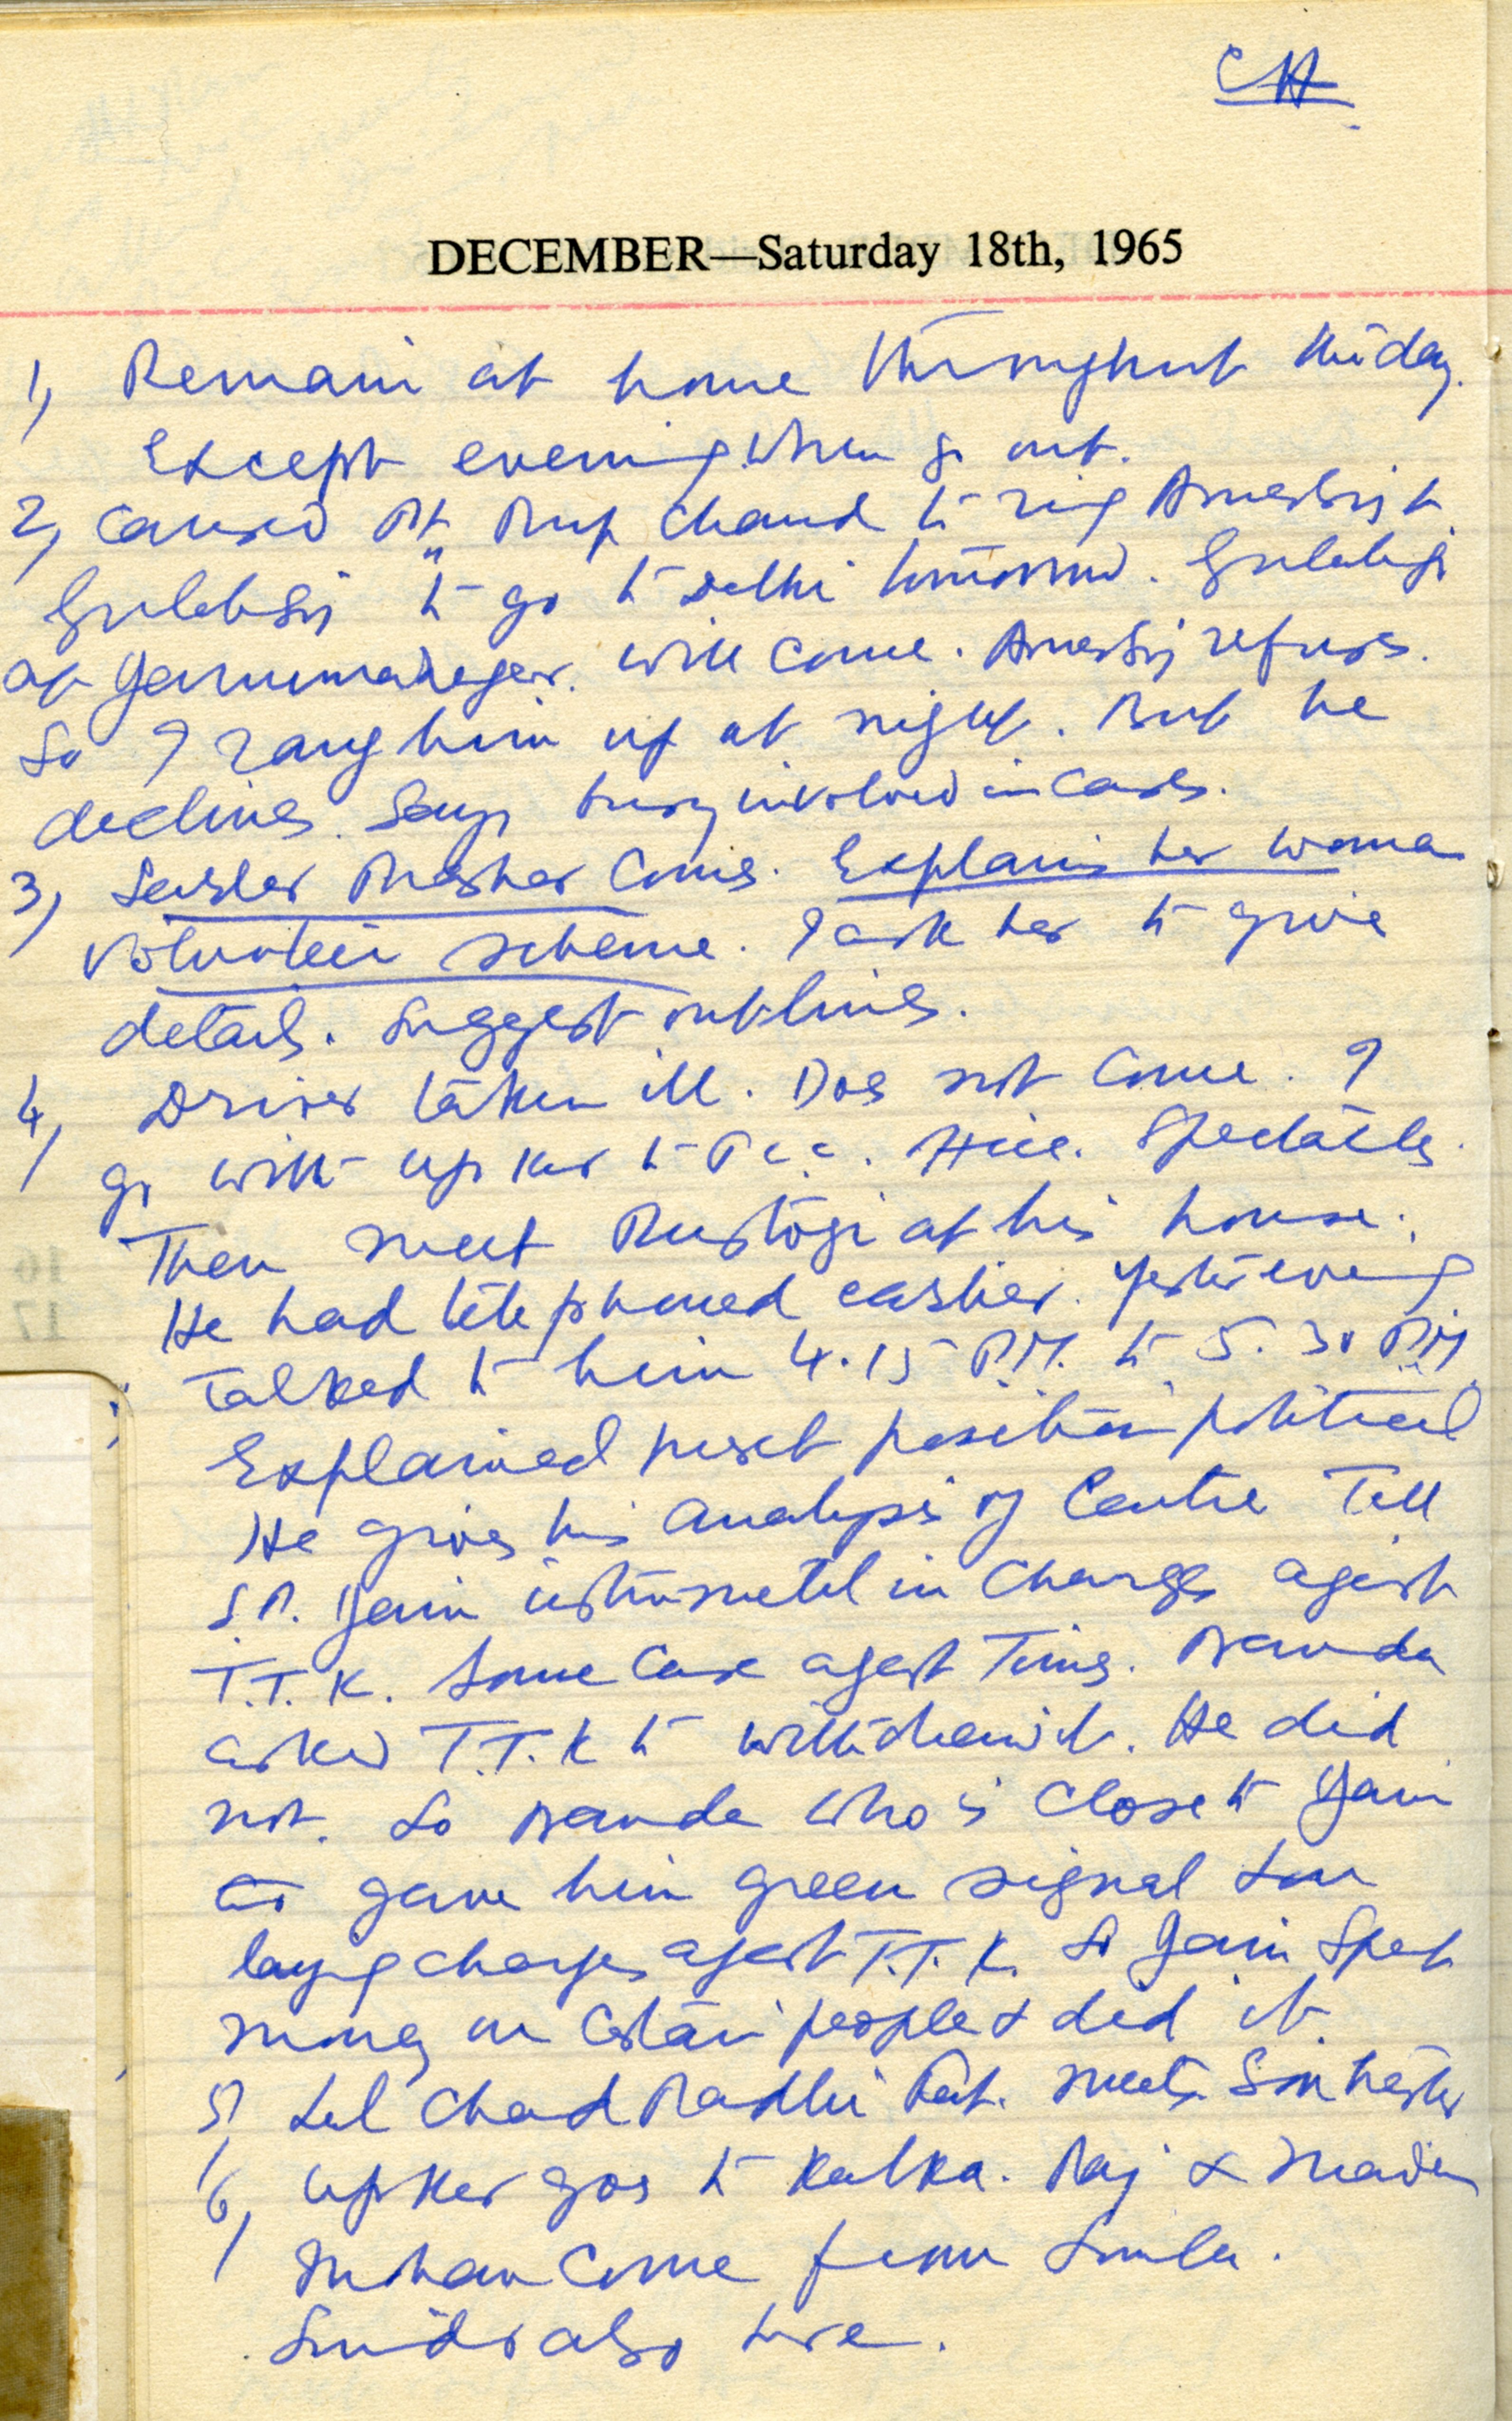 CH
DECEMBER—Saturday 18th, 1965
1, Remain at home throughout the day.
Except evening when go out.
2, Caused Pt. Rup Chand to ring &
to go to Delhi tomorrow. Gulabji
at Yamunanagar. Will come. refuses.
So I rang him up at night. But he
declines. Says busy involved in cases.
3, Comes. Explains her woman
volunteer scheme. I ask her to give
details. Suggest outlines.
4, Driver taken ill. Does not come. I
go with Upkar to P.C.C. Hire. Spectacles.
Then meet Rustogi at his house.
He had telephoned earlier. Yesterevening
Talked to him 4.15 P.M. to 5.30 P.M.
Explained preset position political
He gives his analysis of Centre Tell
S.P. Jain instrumetal in charges agist
T.T.K. Some case agest Times. Nanda
asked T.T.K to withdraw it. He did
not. So Nanda who is close to Jain
gave him green signal for
laying charges agest T.T.K. So Jain spet
money on certain people & did it.
5, Lal Chad meets
6, Upkar goes to Kalka. Raj & Madan
Mohan come from Simla.
also here.